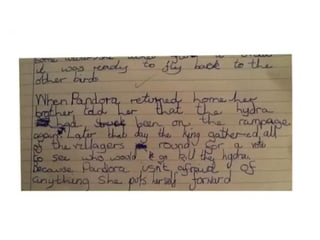 it was ready to fly back to the
other birds
When Pandora returned home her
brother told her that the hydra
had been on the rampage
again. Later that day the king gathered all
of the villagers round for a vote
to see who would go kill the hydra,
because Pandora isn't afraid of
anything she puts herself forward